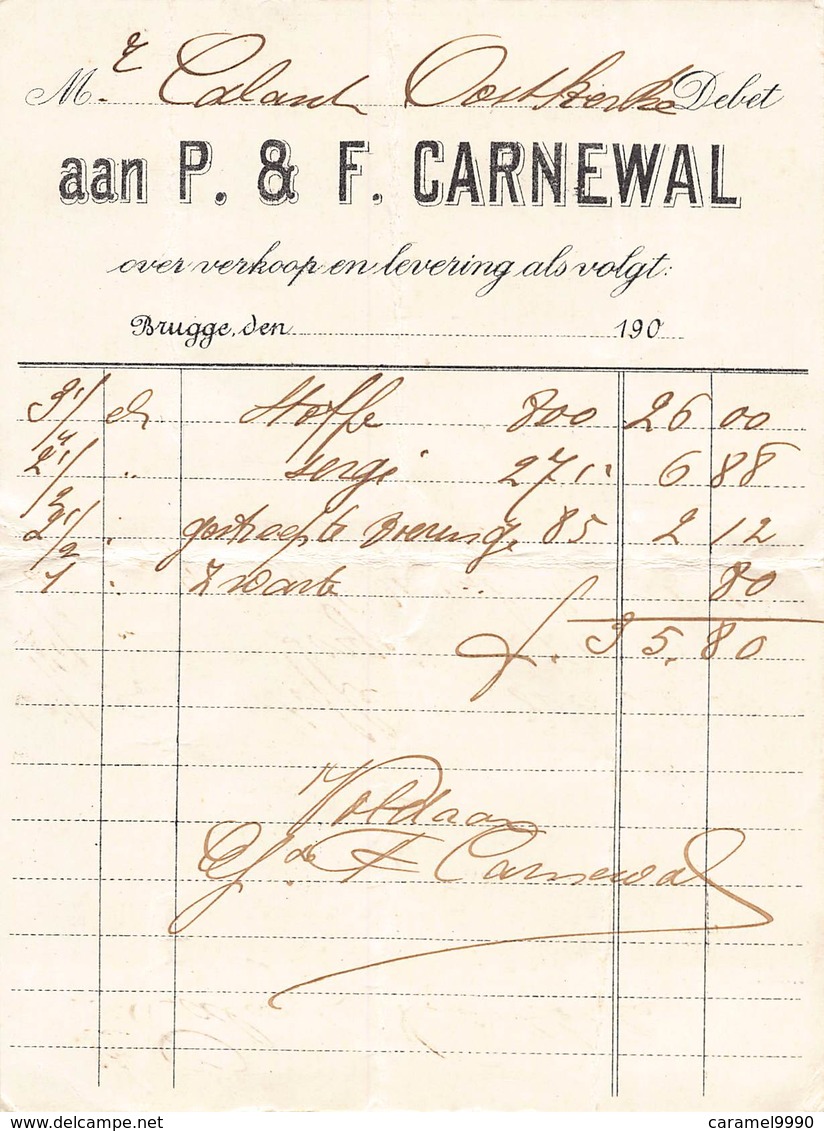 Mr Calant Oostkerke Debet
aan P. & F. CARNEWAL
over verkoop en levering als volgt:
Brugge, den 190
3 1/4 el Stoffe 800 26 00
2 1/2 " serge 27 " 6 88
2 1/2 " gestreepte voering 85 2 12
1 " zwarte " 80
f. 35.80
Voldaan
F Carnewal
delcampe.net
caramel9990